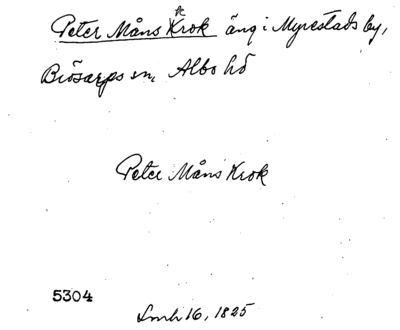 Peter Måns Krok äng i Myrestads by,
Brösarps sn, Albo hd
Peter Måns Krok
5304
Lmh 16, 1825